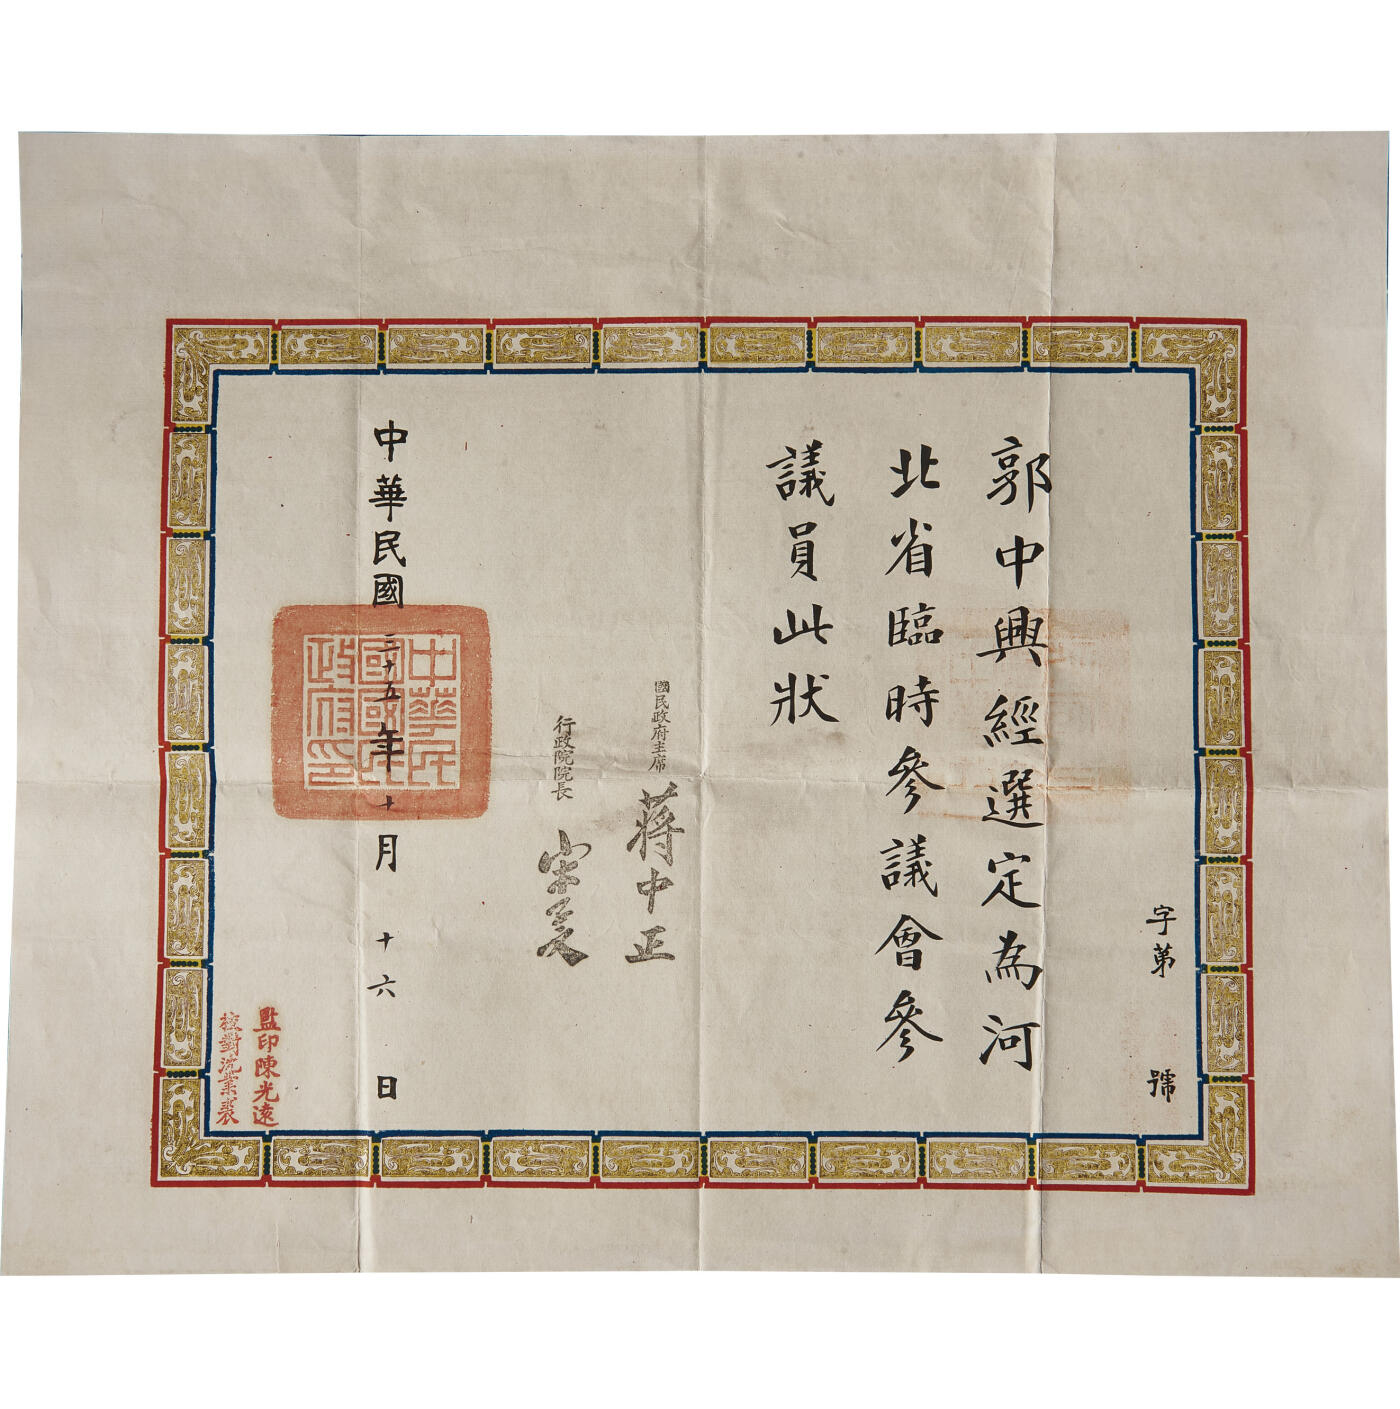 字第 號
郭中興經選定為河
北省臨時參議會參
議員此狀
國民政府主席 蔣中正
行政院院長 宋子文
中華民國三十五年十月十六日
中華民國國民政府印
監印陳光遠
校對沈業裘